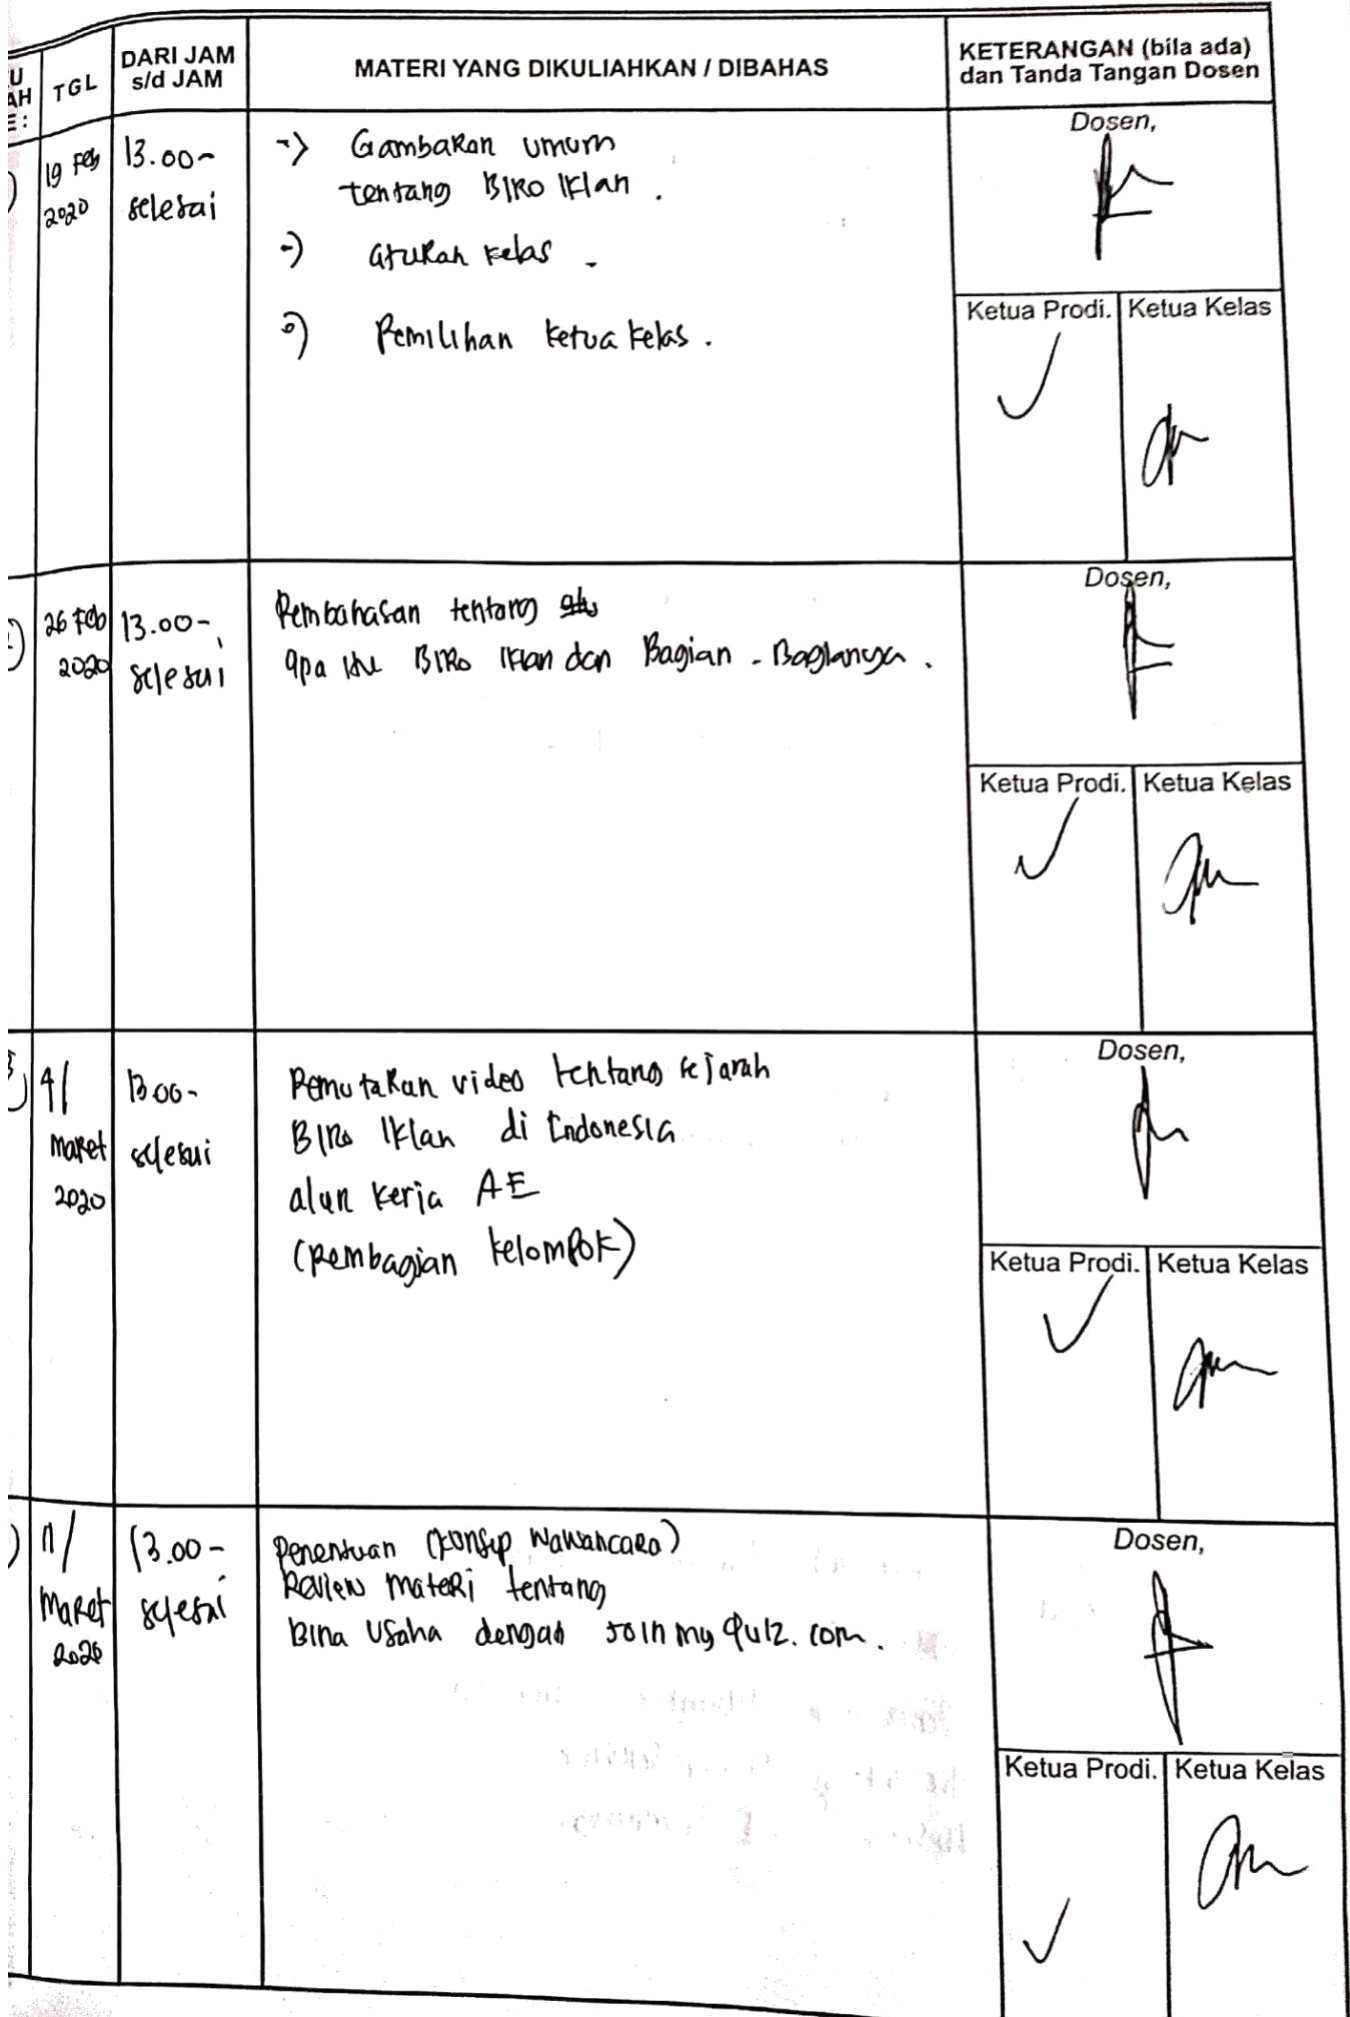 U
AH
E :
TGL
DARI JAM
s/d JAM
MATERI YANG DIKULIAHKAN / DIBAHAS
KETERANGAN (bila ada)
dan Tanda Tangan Dosen
19 Feb
2020
13.00 -
selesai
-) Gambaran umum
tentang BIRO Iklan .
-) aturan kelas .
-) Pemilihan ketua kelas .
Dosen,
Ketua Prodi.
Ketua Kelas
26 Feb
2020
13.00 -
selesai
Pembahasan tentang
apa itu BIRO Iklan dan Bagian - Bagianya .
Dosen,
Ketua Prodi.
Ketua Kelas
4/
Maret
2020
13.00 -
selesai
Pemutaran video tentang sejarah
BIRO Iklan di Indonesia
alur kerja AE
(pembagian kelompok)
Dosen,
Ketua Prodi.
Ketua Kelas
11/
Maret
2020
13.00 -
selesai
Penentuan (konsep wawancara)
Review materi tentang
Bina Usaha dengan joinmyquiz.com .
Dosen,
Ketua Prodi.
Ketua Kelas